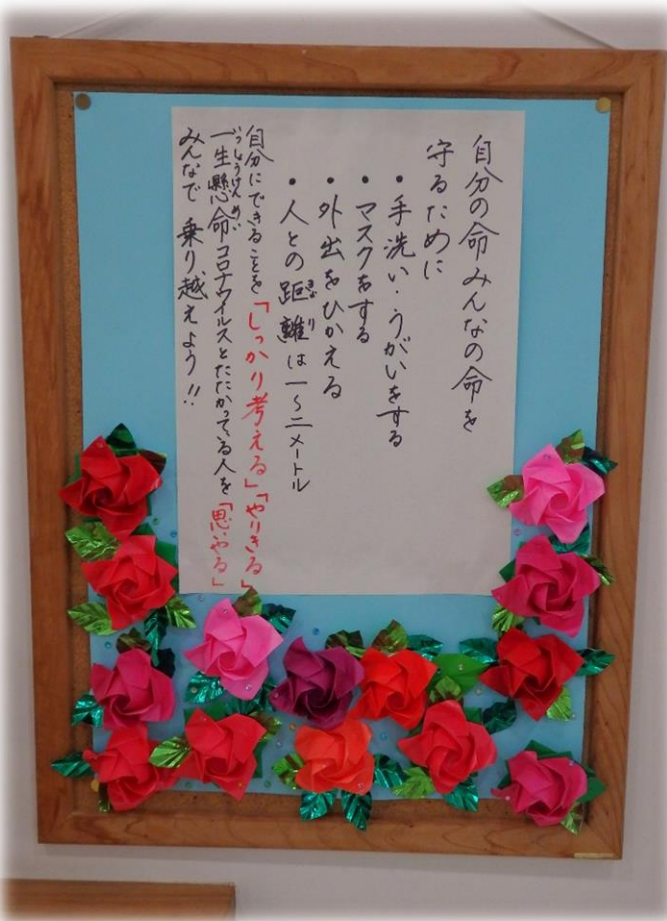 自分の命みんなの命を
守るために
・手洗い・うがいをする
・マスクをする
・外出をひかえる
・人との距離は一～二メートル
きょり
自分にできることを「しっかり考える」「やりきる」
一生懸命コロナウイルスとたたかっている人を「思いやる」
いっしょうけんめい
みんなで乗り越えよう!!